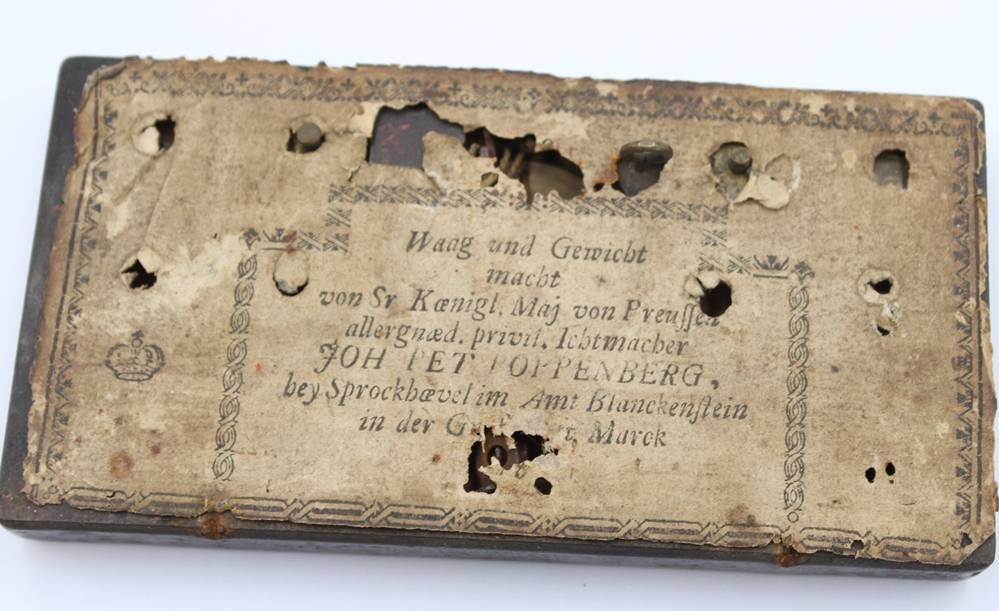 Waag und Gewicht
macht
von Sr Kœnigl. Maj von Preuſſen
allergnæd. privil. Ichtmacher
JOH PET POPPENBERG,
bey Sprockhœvel im Amt Blanckenſtein
in der Marck